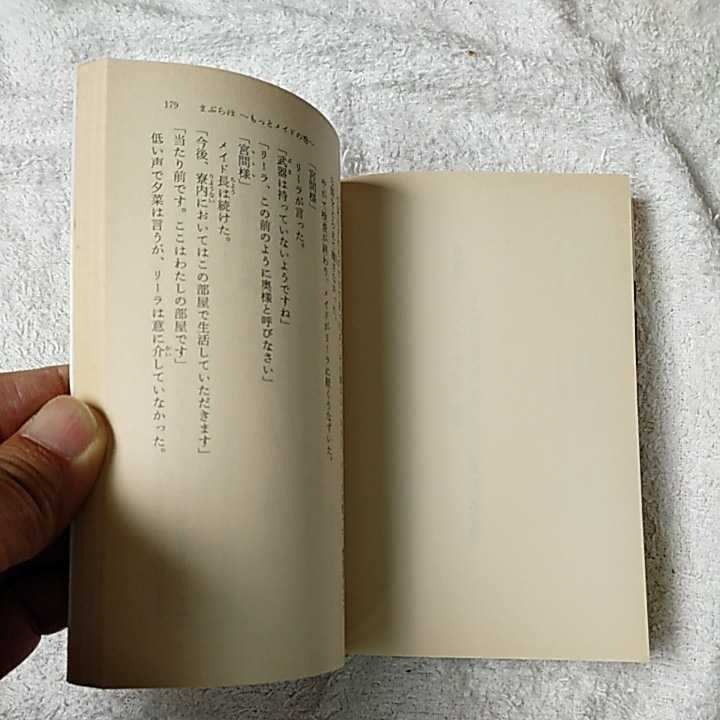 179 まぶらほ ～もっとメイドの巻～
「宮間様」
リーラが言った。
「武器は持っていないようですね」
「リーラ、この前のように奥様と呼びなさい」
「宮間様」
メイド長は続けた。
「今後、寮内においてはこの部屋で生活していただきます」
「当たり前です。ここはわたしの部屋です」
低い声で夕菜は言うが、リーラは意に介していなかった。